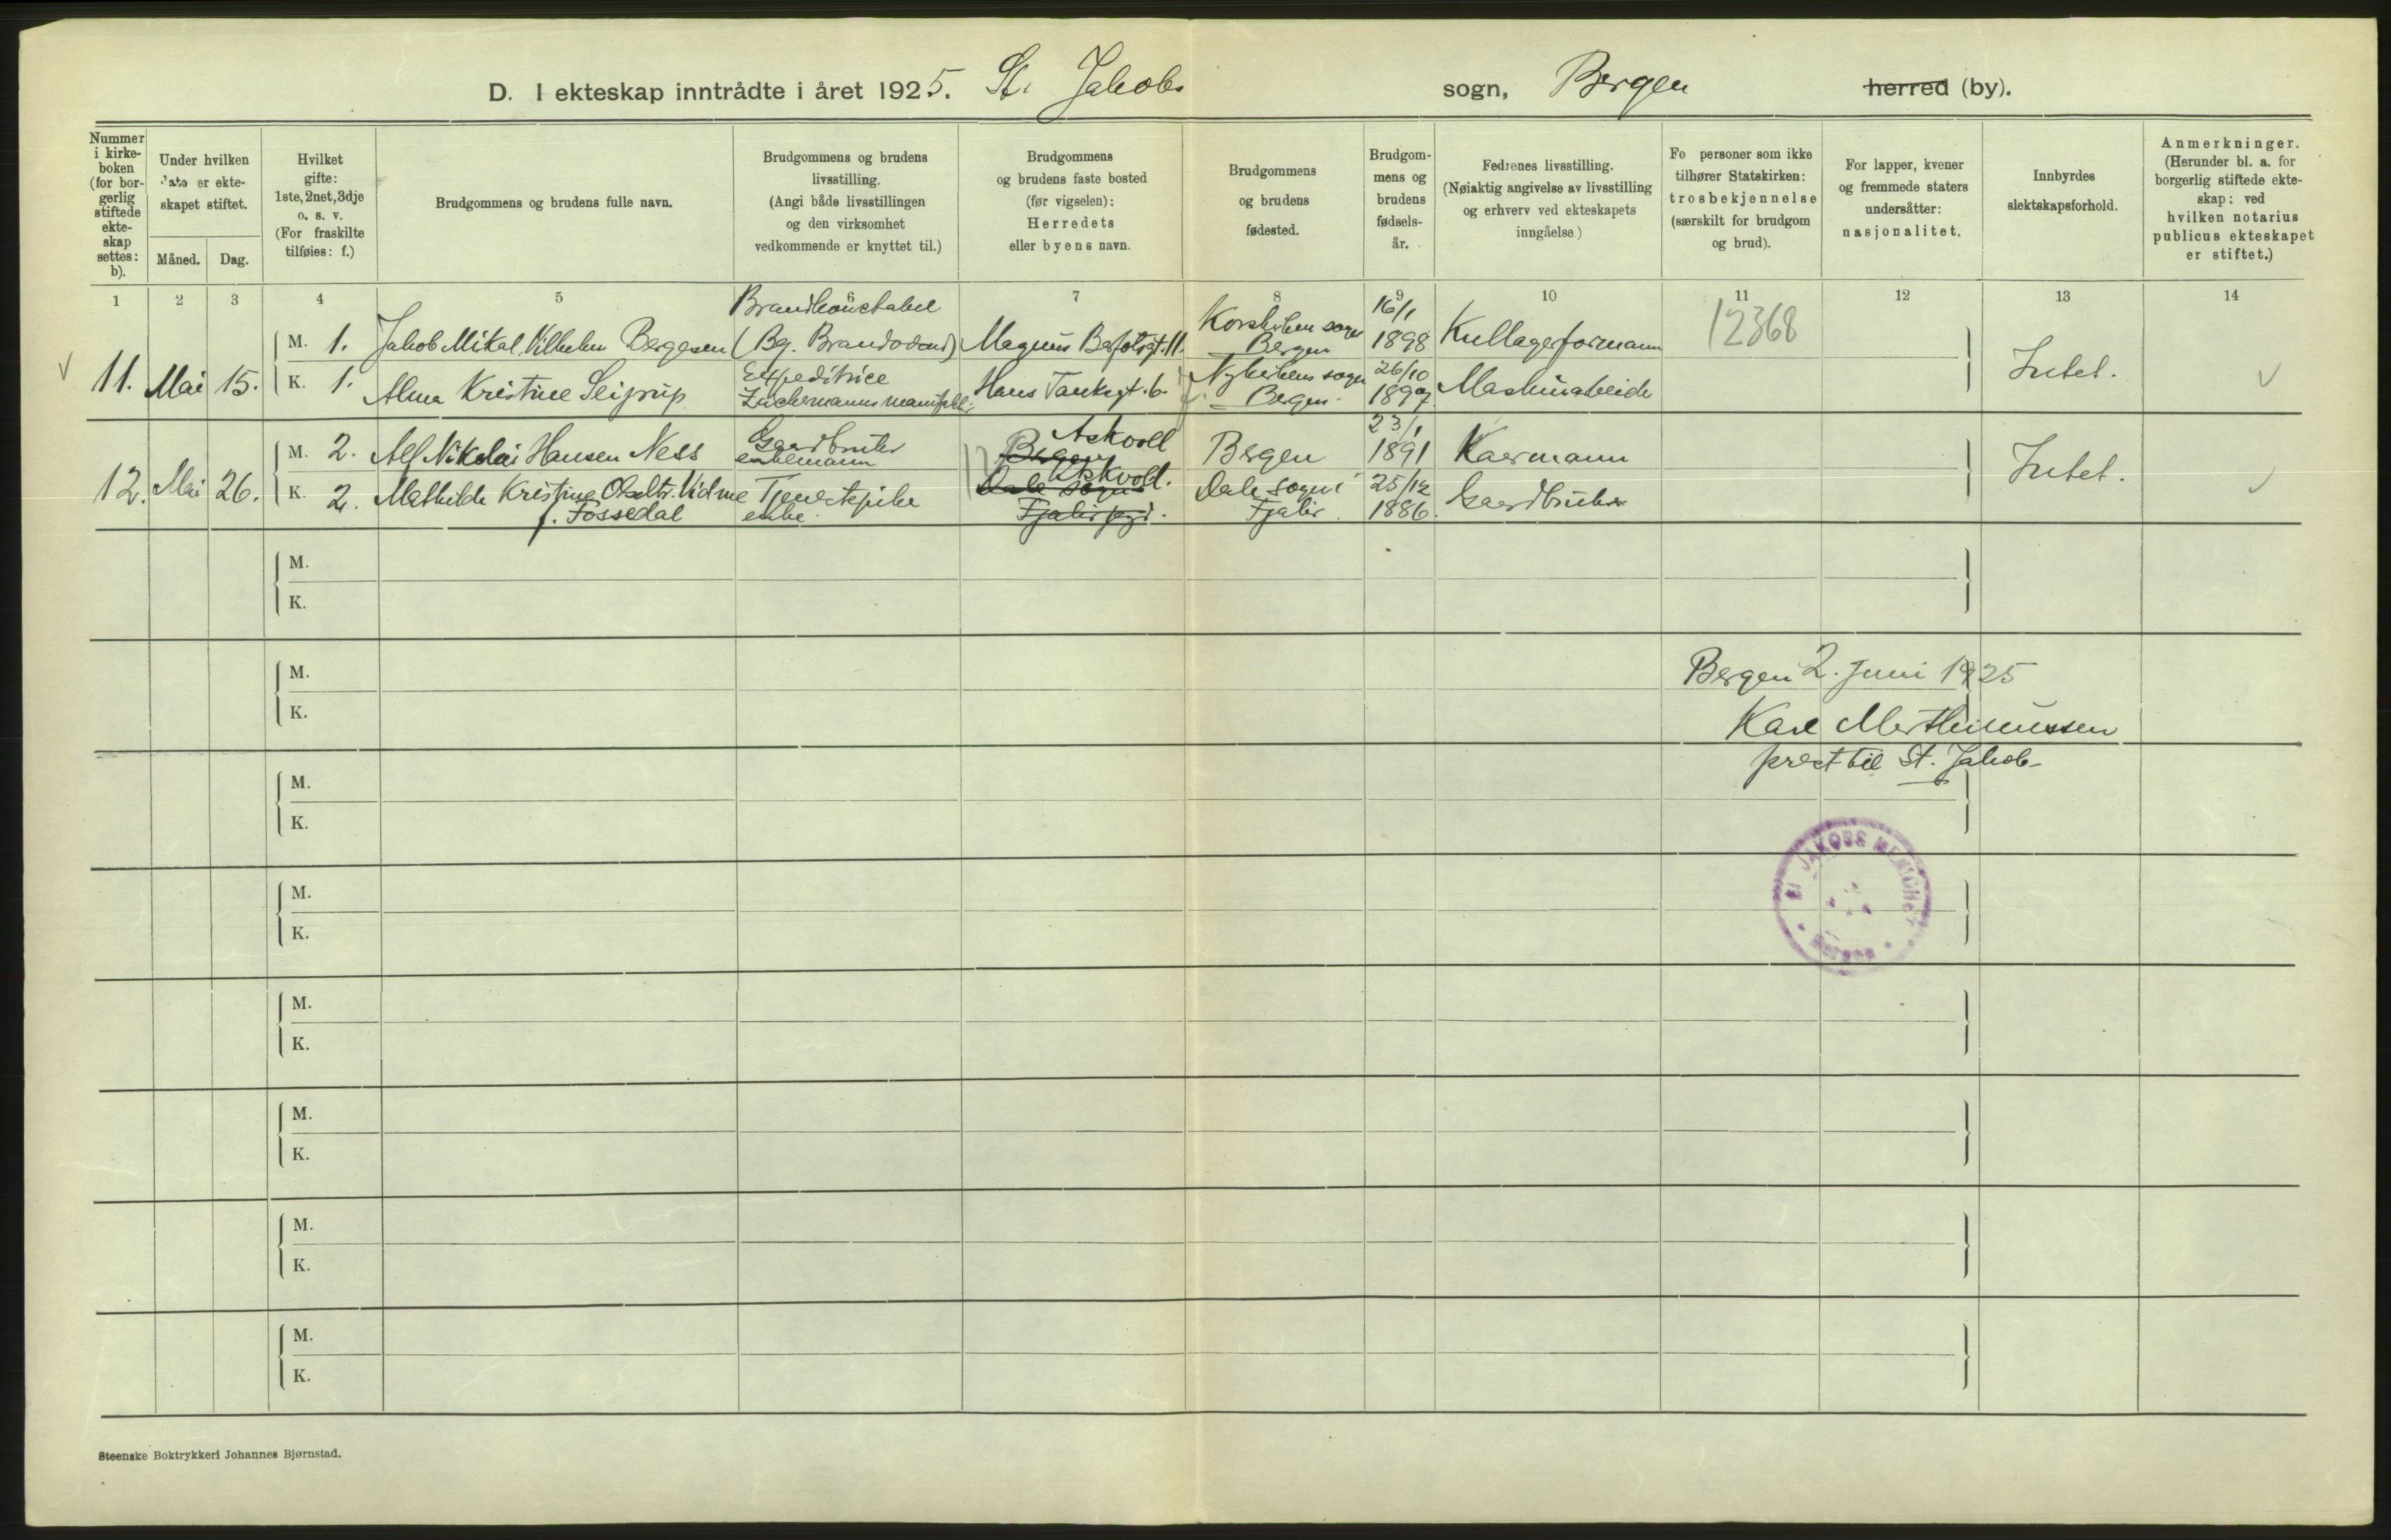 D. I ekteskap inntrådte i året 1925. St. Jakobs sogn, Bergen herred (by).
Nummer i kirke- boken (for bor- gerlig stiftede ekte- skap settes: b).
Under hvilken dato er ekte- skapet stiftet.
Måned. Dag.
Hvilket gifte: 1ste, 2net, 3dje o. s. v. (For fraskilte tilføies: f.)
Brudgommens og brudens fulle navn.
Brudgommens og brudens livsstilling. (Angi både livsstillingen og den virksomhet vedkommende er knyttet til.)
Brudgommens og brudens faste bosted (før vigselen): Herredets eller byens navn.
Brudgommens og brudens fødested.
Brudgom- mens og brudens fødsels- år.
Fedrenes livsstilling. (Nøiaktig angivelse av livsstilling og erhverv ved ekteskapets inngåelse.)
Fo personer som ikke tilhører Statskirken: trosbekjennelse (særskilt for brudgom og brud).
For lapper, kvener og fremmede staters undersåtter: nasjonalitet.
Innbyrdes slektskapsforhold.
Anmerkninger. (Herunder bl. a. for borgerlig stiftede ekte- skap: ved hvilken notarius publicus ekteskapet er stiftet.)
1 2 3 4 5 6 7 8 9 10 11 12 13 14
12368
11. Mai 15.
M. 1. Jakob Mikal Vilhelm Bergesen Brandkonstabel (Bg. Brandv Magnus Barfotsgt. 11. Korskirken sogn Bergen 16/1 1898 Kullagerformann
K. 1. Alma Kristine Seiprup Expeditrice Hans Tanksgt. 6 Nykirkens sogn Bergen 26/10 1897 Maskinarbeide
Intet.
12. Mai 26.
M. 2. Alf Nikolai Hansen Ness Gaardbruker enkemann Bergen Askvoll Bergen 23/1 1891 Kaermann
K. 2. Mathilde Kristine Olsdtr. Vidme f. Fossedal Tjenestepike enke Dale sogn Askvoll. Fjaler pgd. Dale sogn i Fjaler 25/12 1886 Gaardbruker
Intet.
M.
K.
M.
K.
Bergen 2. Juni 1925
Karl Marthinussen
prest til St. Jakob
M.
K.
ST JAKOBS MENIGHET
BERGEN
M.
K.
M.
K.
M.
K.
M.
K.
M.
K.
Steenske Boktrykkeri Johannes Bjørnstad.